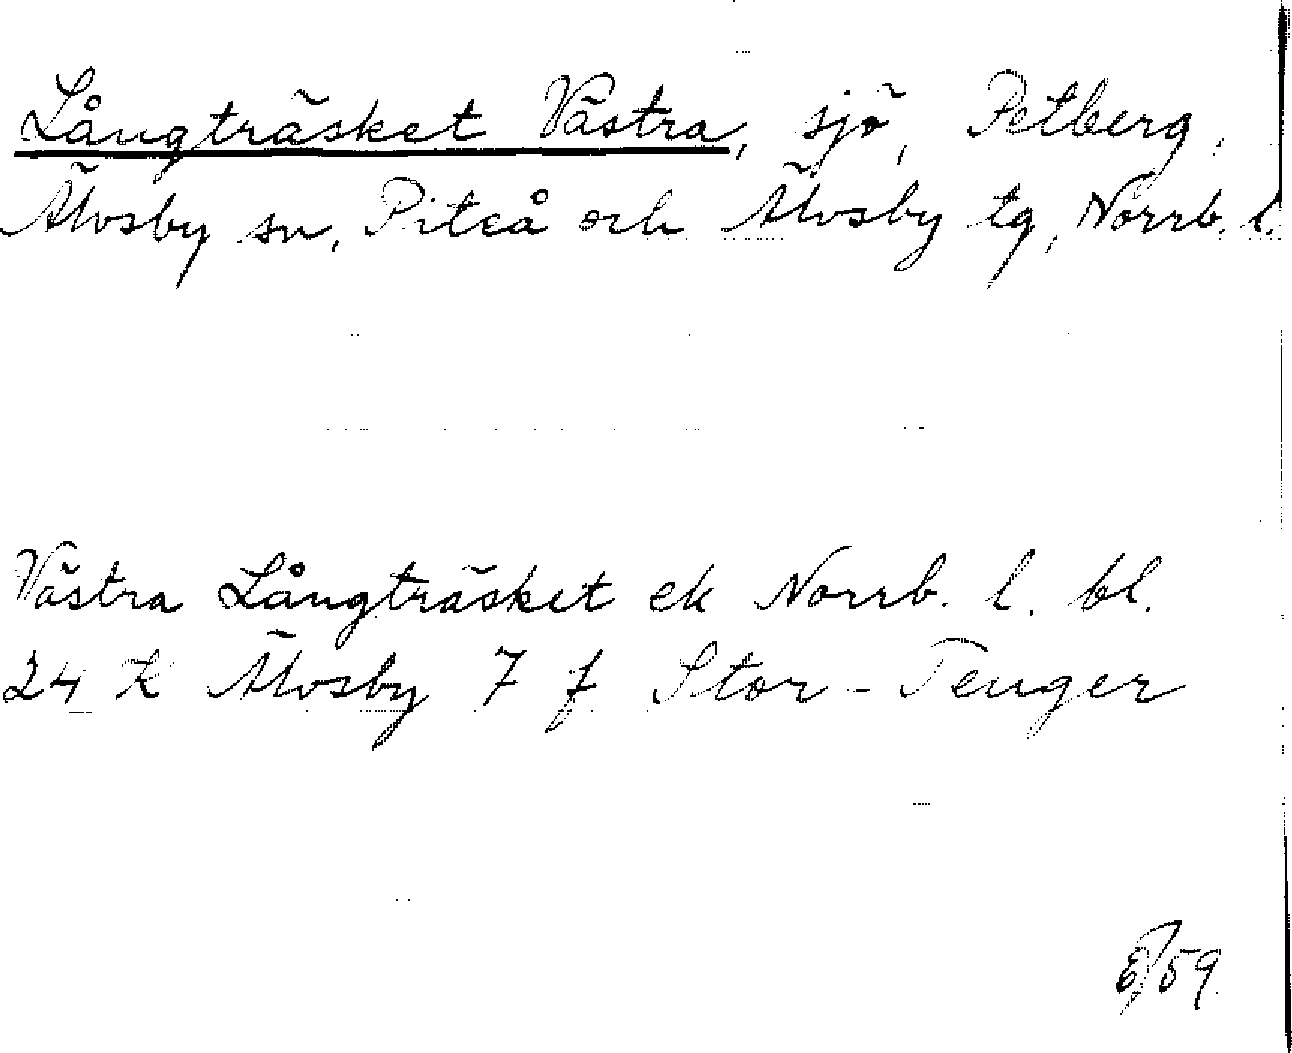 Långträsket Västra, sjö, Petberg,
Älvsby sn, Piteå och Älvsby tg, Norrb. l.
Västra Långträsket ek Norrb. l. bl.
24 K Älvsby 7 f Stor-Tenger
59